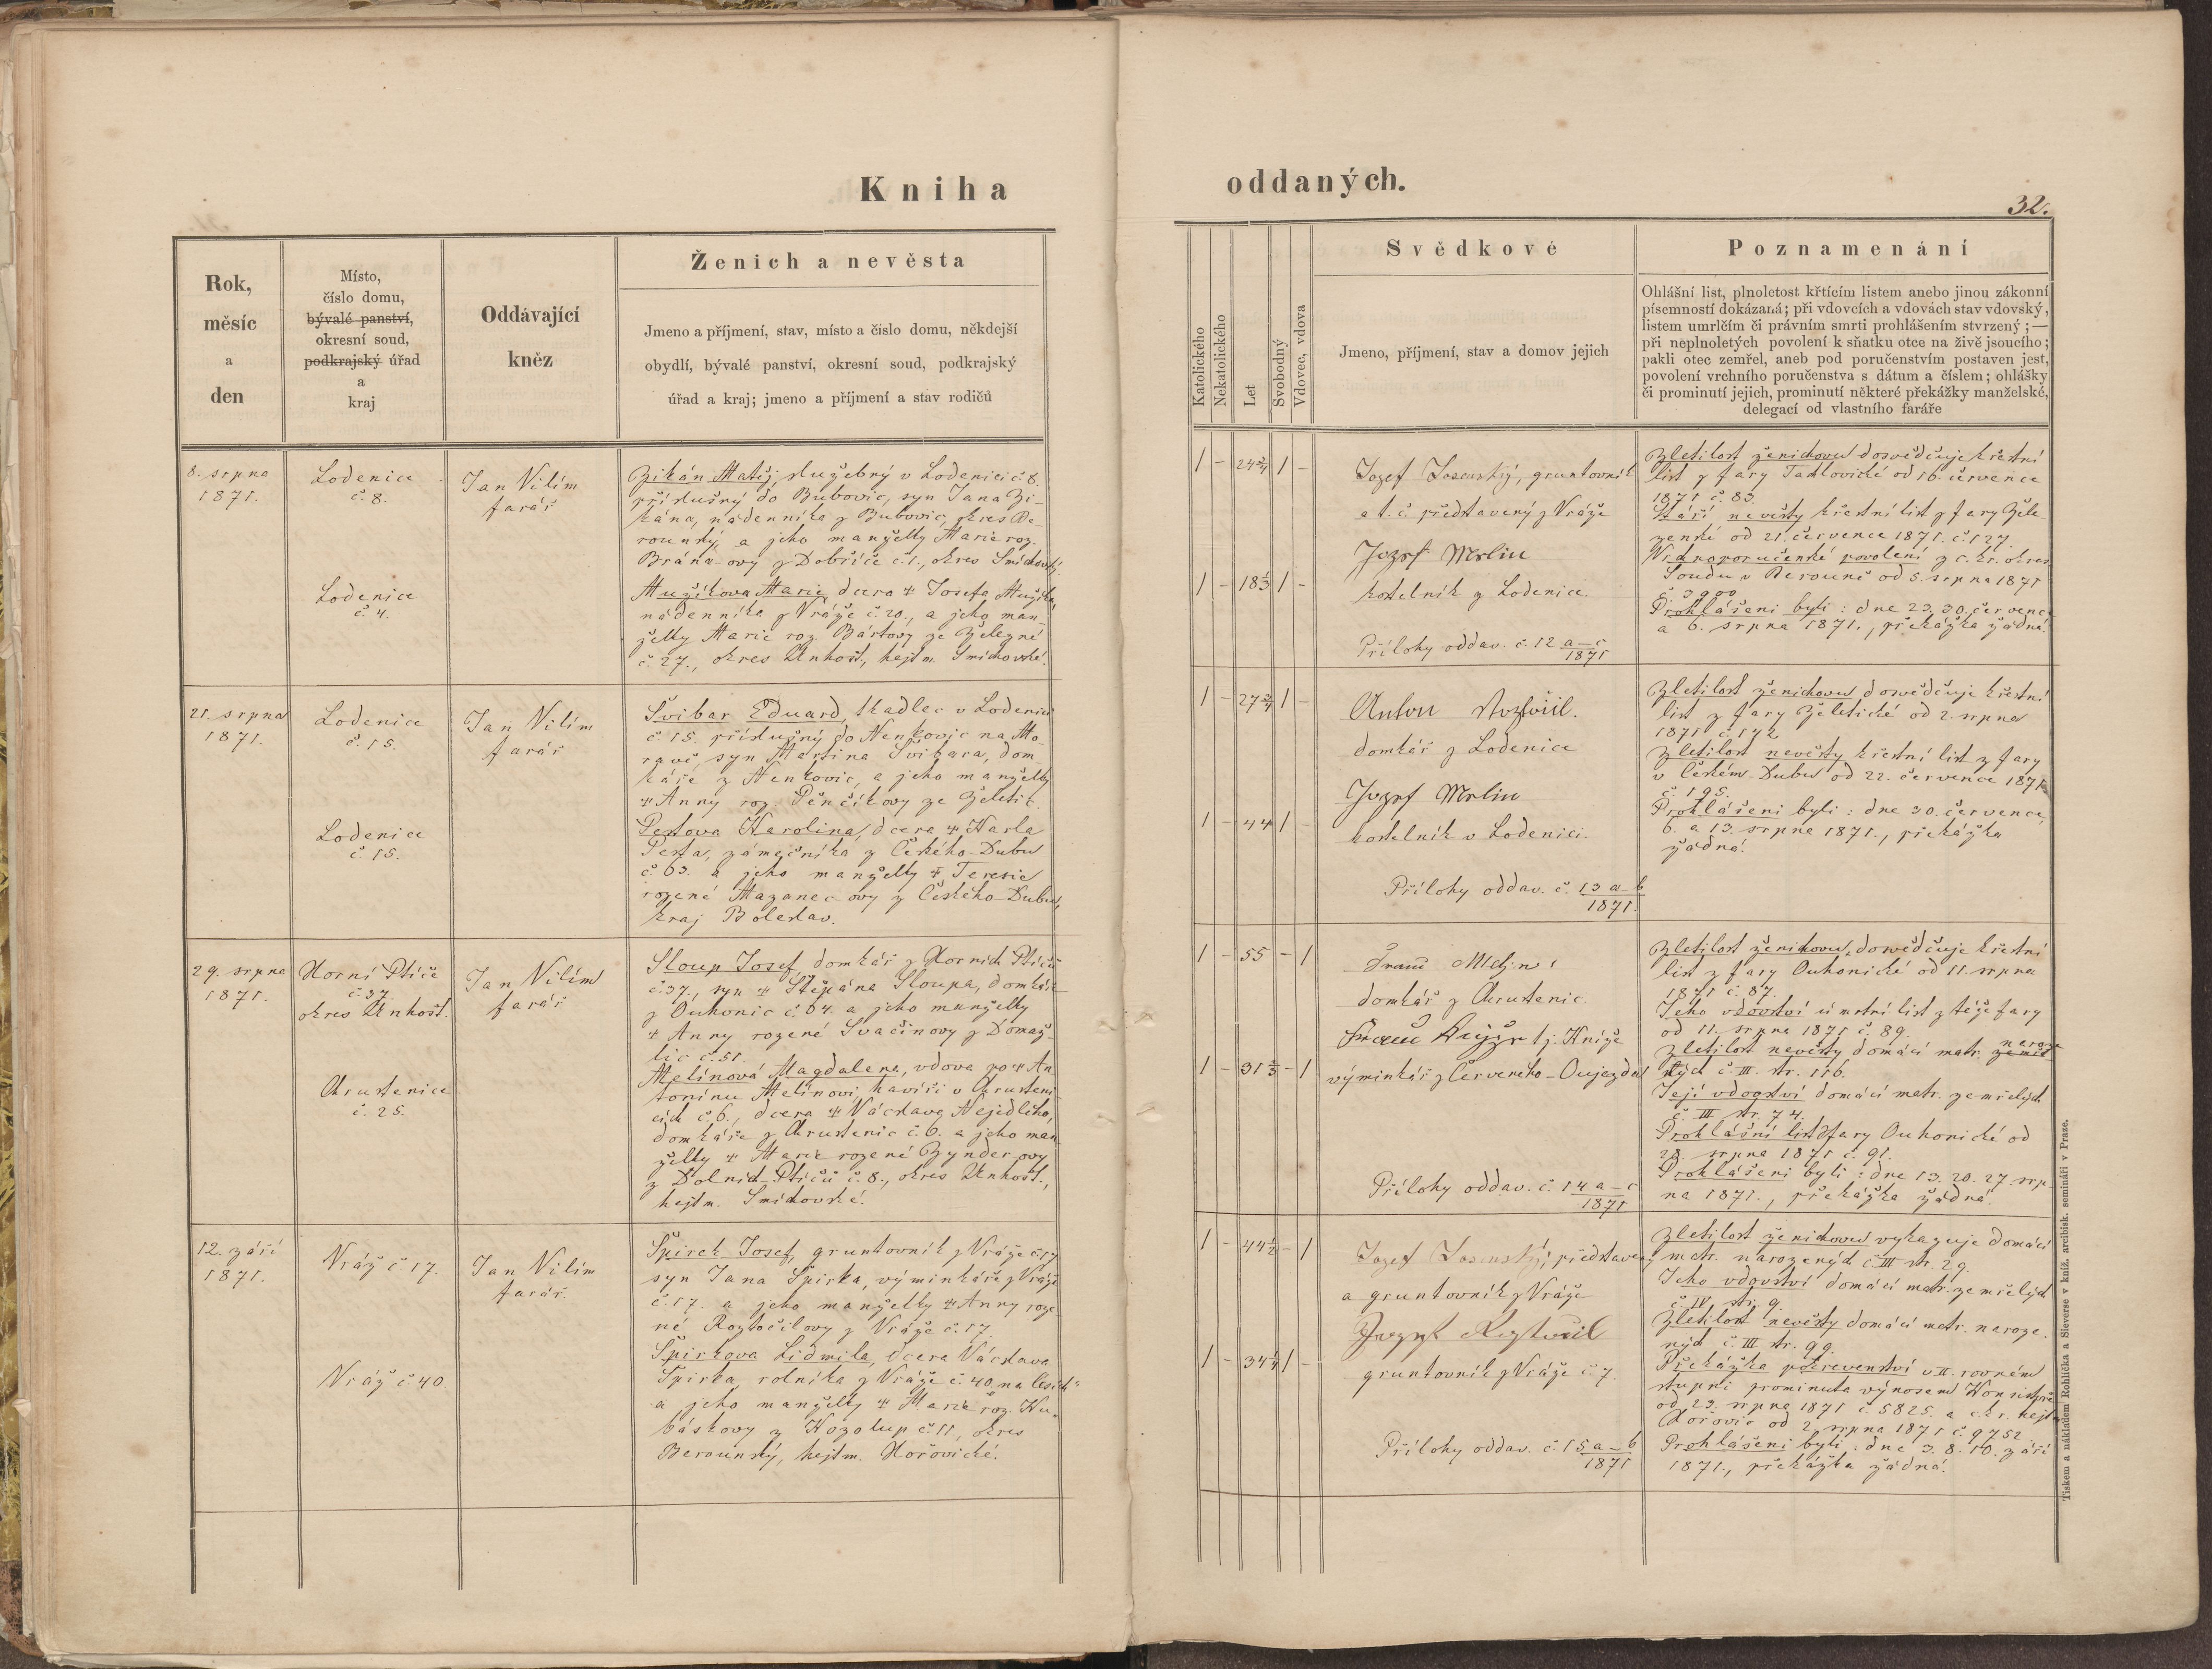 Kniha
Rok,
měsíc
a
den
Místo,
číslo domu,
bývalé panství,
okresní soud,
podkrajský úřad
a
kraj
Oddávající
kněz
Ženich a nevěsta
Jmeno a příjmení, stav, místo a číslo domu, někdejší
obydlí, bývalé panství, okresní soud, podkrajský
úřad a kraj; jmeno a příjmení a stav rodičů
8. srpna
1871.
Lodenice
č. 8.
Jan Vilím
farář
Zikán Matěj, služebný v Lodenici č. 8.
příslušný do Bubovic, syn Jana Zi-
kána, nádenníka z Bubovic, okres Be-
rounský a jeho manželky Marie roz.
Brána-ovy z Dobříče č. 1., okres Smíchovský.
Lodenice
č. 4.
Mužíkova Marie, dcera † Josefa Mužíka,
nádenníka z Vráže č. 20., a jeho man-
želky Marie roz. Bártovy ze Železné
č. 27., okres Unhošt, hejtm. Smíchovské.
21. srpna
1871.
Lodenice
č. 15.
Jan Vilím
farář
Švibar Eduard, tkadlec v Lodenici
č. 15. příslušný do Nenkovic na Mo-
ravě, syn Martina Švibara, dom-
káře z Nenkovic, a jeho manželky
† Anny roz. Pěnčíkovy ze Želetic.
Lodenice
č. 15.
Pestova Karolina, dcera † Karla
Pesta, zámečníka z Českého-Dubu
č. 63. a jeho manželky † Teresie
rozené Mazanec-ovy z Českého-Dubu,
kraj Boleslav.
29. srpna
1871.
Horní Ptíče
č. 37.
okres Unhošt.
Jan Vilím
farář
Sloup Josef, domkář z Horních Ptíčů
č. 37., syn † Štěpána Sloupa, domkáře
z Ouhonic č. 64. a jeho manželky
† Anny rozené Svačinovy z Domaž-
lic č. 51.
Chrustenice
č. 25.
Melínová Magdalena, vdova po † An-
tonínu Melínovi, havíři v Chrusteni-
cích č. 6., dcera † Václava Nejedlého,
domkáře z Chrustenic č. 6. a jeho man-
želky † Marie rozené Zynder-ovy
z Dolních-Ptíčů č. 8., okres Unhošt.,
hejtm. Smíchovské.
12. září
1871.
Vráž č 17.
Jan Vilím
farář.
Špirek Josef, gruntovník z Vráže č. 17
syn Jana Špirka, výminkáře z Vráže
č. 17. a jeho manželky † Anny roze-
né Roztočilovy z Vráže č. 17.
Vráž č. 40.
Špirkova Lidmila, dcera Václava
Špirka, rolníka z Vráže č. 40
a jeho manželky † Marie roz. Ku-
báskovy z Kozolup č. 11, okres
Berounský, hejtm. Hořovické.
oddaných.
32.
Katolického
Nekatolického
Let
Svobodný
Vdovec, vdova
Svědkové
Jmeno, příjmení, stav a domov jejich
Poznamenání
Ohlášní list, plnoletost křtícím listem anebo jinou zákonní
písemností dokázaná; při vdovcích a vdovách stav vdovský,
listem umrlčím či právním smrti prohlášením stvrzený; —
při neplnoletých povolení k sňatku otce na živě jsoucího;
pakli otec zemřel, aneb pod poručenstvím postaven jest,
povolení vrchního poručenstva s dátum a číslem; ohlášky
či prominutí jejich, prominutí některé překážky manželské,
delegací od vlastního faráře
1 - 24 3/4 1 -
Jozef Losenský, gruntovník
a t. č. představený z Vráže
Jozef Mrlin
1 - 18 1/3 1 -
kostelník z Lodenice.
Přílohy oddav. č. 12 a-c
1871
Zletilost ženichovu dosvědčuje křestní
list z fary Tachlovické od 16. července
1871 č. 83.
Stáří nevěsty křestní list z fary Žele-
zenské od 21. července 1871. č. 127.
Vrchnoporučenské povolení z c. kr. okres.
Soudu v Berouně od 5. srpna 1871
č. 3900
Prohlášeni byli: dne 23. 30. července
a 6. srpna 1871., překážka žádná.
1 - 27 3/4 1 -
Anton Roztočil.
domkář z Lodenice
Jozef Mrlin
1 - 44 1 -
kostelník v Lodenici.
Přílohy oddav. č. 13 a-b
1871.
Zletilost ženichovu dosvědčuje křestní
list z fary Želetické od 2. srpna
1871 č. 142
Zletilost nevěsty křestní list z fary
v Českém-Dubu od 22. července 1871
č. 195.
Prohlášeni byli: dne 30. července,
6. a 13. srpna 1871., překážka
žádná.
1 - 55 - 1
domkář z Chrustenic.
tj. Kníže
1 - 31 2/3 - 1
výminkář z Červeného-Oujezda
Přílohy oddav. č. 14 a-c
1871
Zletilost ženichovu dosvědčuje křestní
list z fary Ouhonické od 11. srpna
1871 č. 87.
Jeho vdovství úmrtní list z téže fary
od 11. srpna 1871 č. 89.
Zletilost nevěsty domácí matr. naroze-
ných č. III. str. 116.
Její vdovství domácí matr. zemřelých
č. III str. 74.
Prohlášní list z fary Ouhonické od
28. srpna 1871 č. 91.
Prohlášeni byli: dne 13. 20. 27. srp-
na 1871., překážka žádná.
1 - 44 1/2 - 1
Jozef Losenský, představený
a gruntovník z Vráže
Jozef Roztočil
1 - 34 1/4 1 -
gruntovník z Vráže č 7.
Přílohy oddav. č. 15 a-b
1871
Zletilost ženichovu vykazuje domácí
matr. narozených č. III str. 29.
Jeho vdovství domácí matr. zemřelých
č. IV str. 9.
Zletilost nevěsty domácí matr. naroze-
ných č. III str. 99.
Překážka pokrevenství v II. rovném
stupni prominuta výnosem Konsistoře
od 23. srpna 1871 č. 5825. a c. kr. hejt.
Hořovic od 2. srpna 1871 č. 9752
Prohlášeni byli: dne 3. 8. 10. září
1871., překážka žádná.
Tiskem a nákladem Rohlíčka a Sieverse v kníž. arcibisk. semináři v Praze.